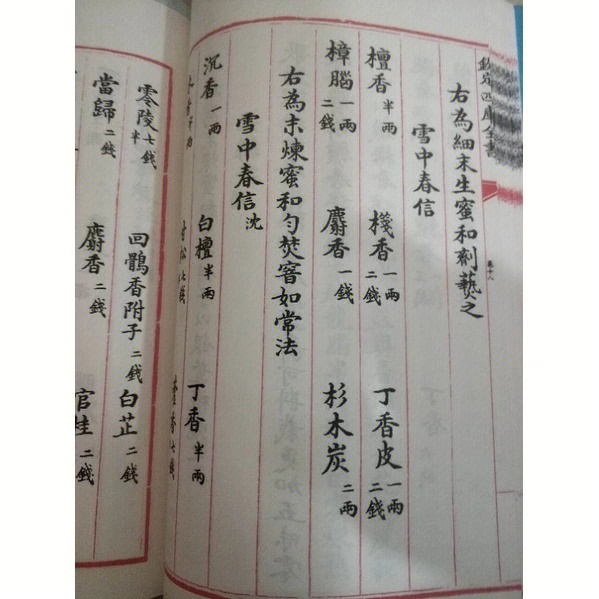 欽定四庫全書
卷十八
右為細末生蜜和劑爇之
雪中春信
檀香半兩 棧香一兩二錢 丁香皮一兩二錢
樟腦一兩二錢 麝香一錢 杉木炭二兩
右為末煉蜜和勻焚窨如常法
雪中春信沈
沉香一兩 白檀半兩 丁香半兩
木香半兩 甘松七錢 藿香七錢
零陵七錢半 回鶻香附子二錢 白芷二錢
當歸二錢 麝香二錢 官桂二錢